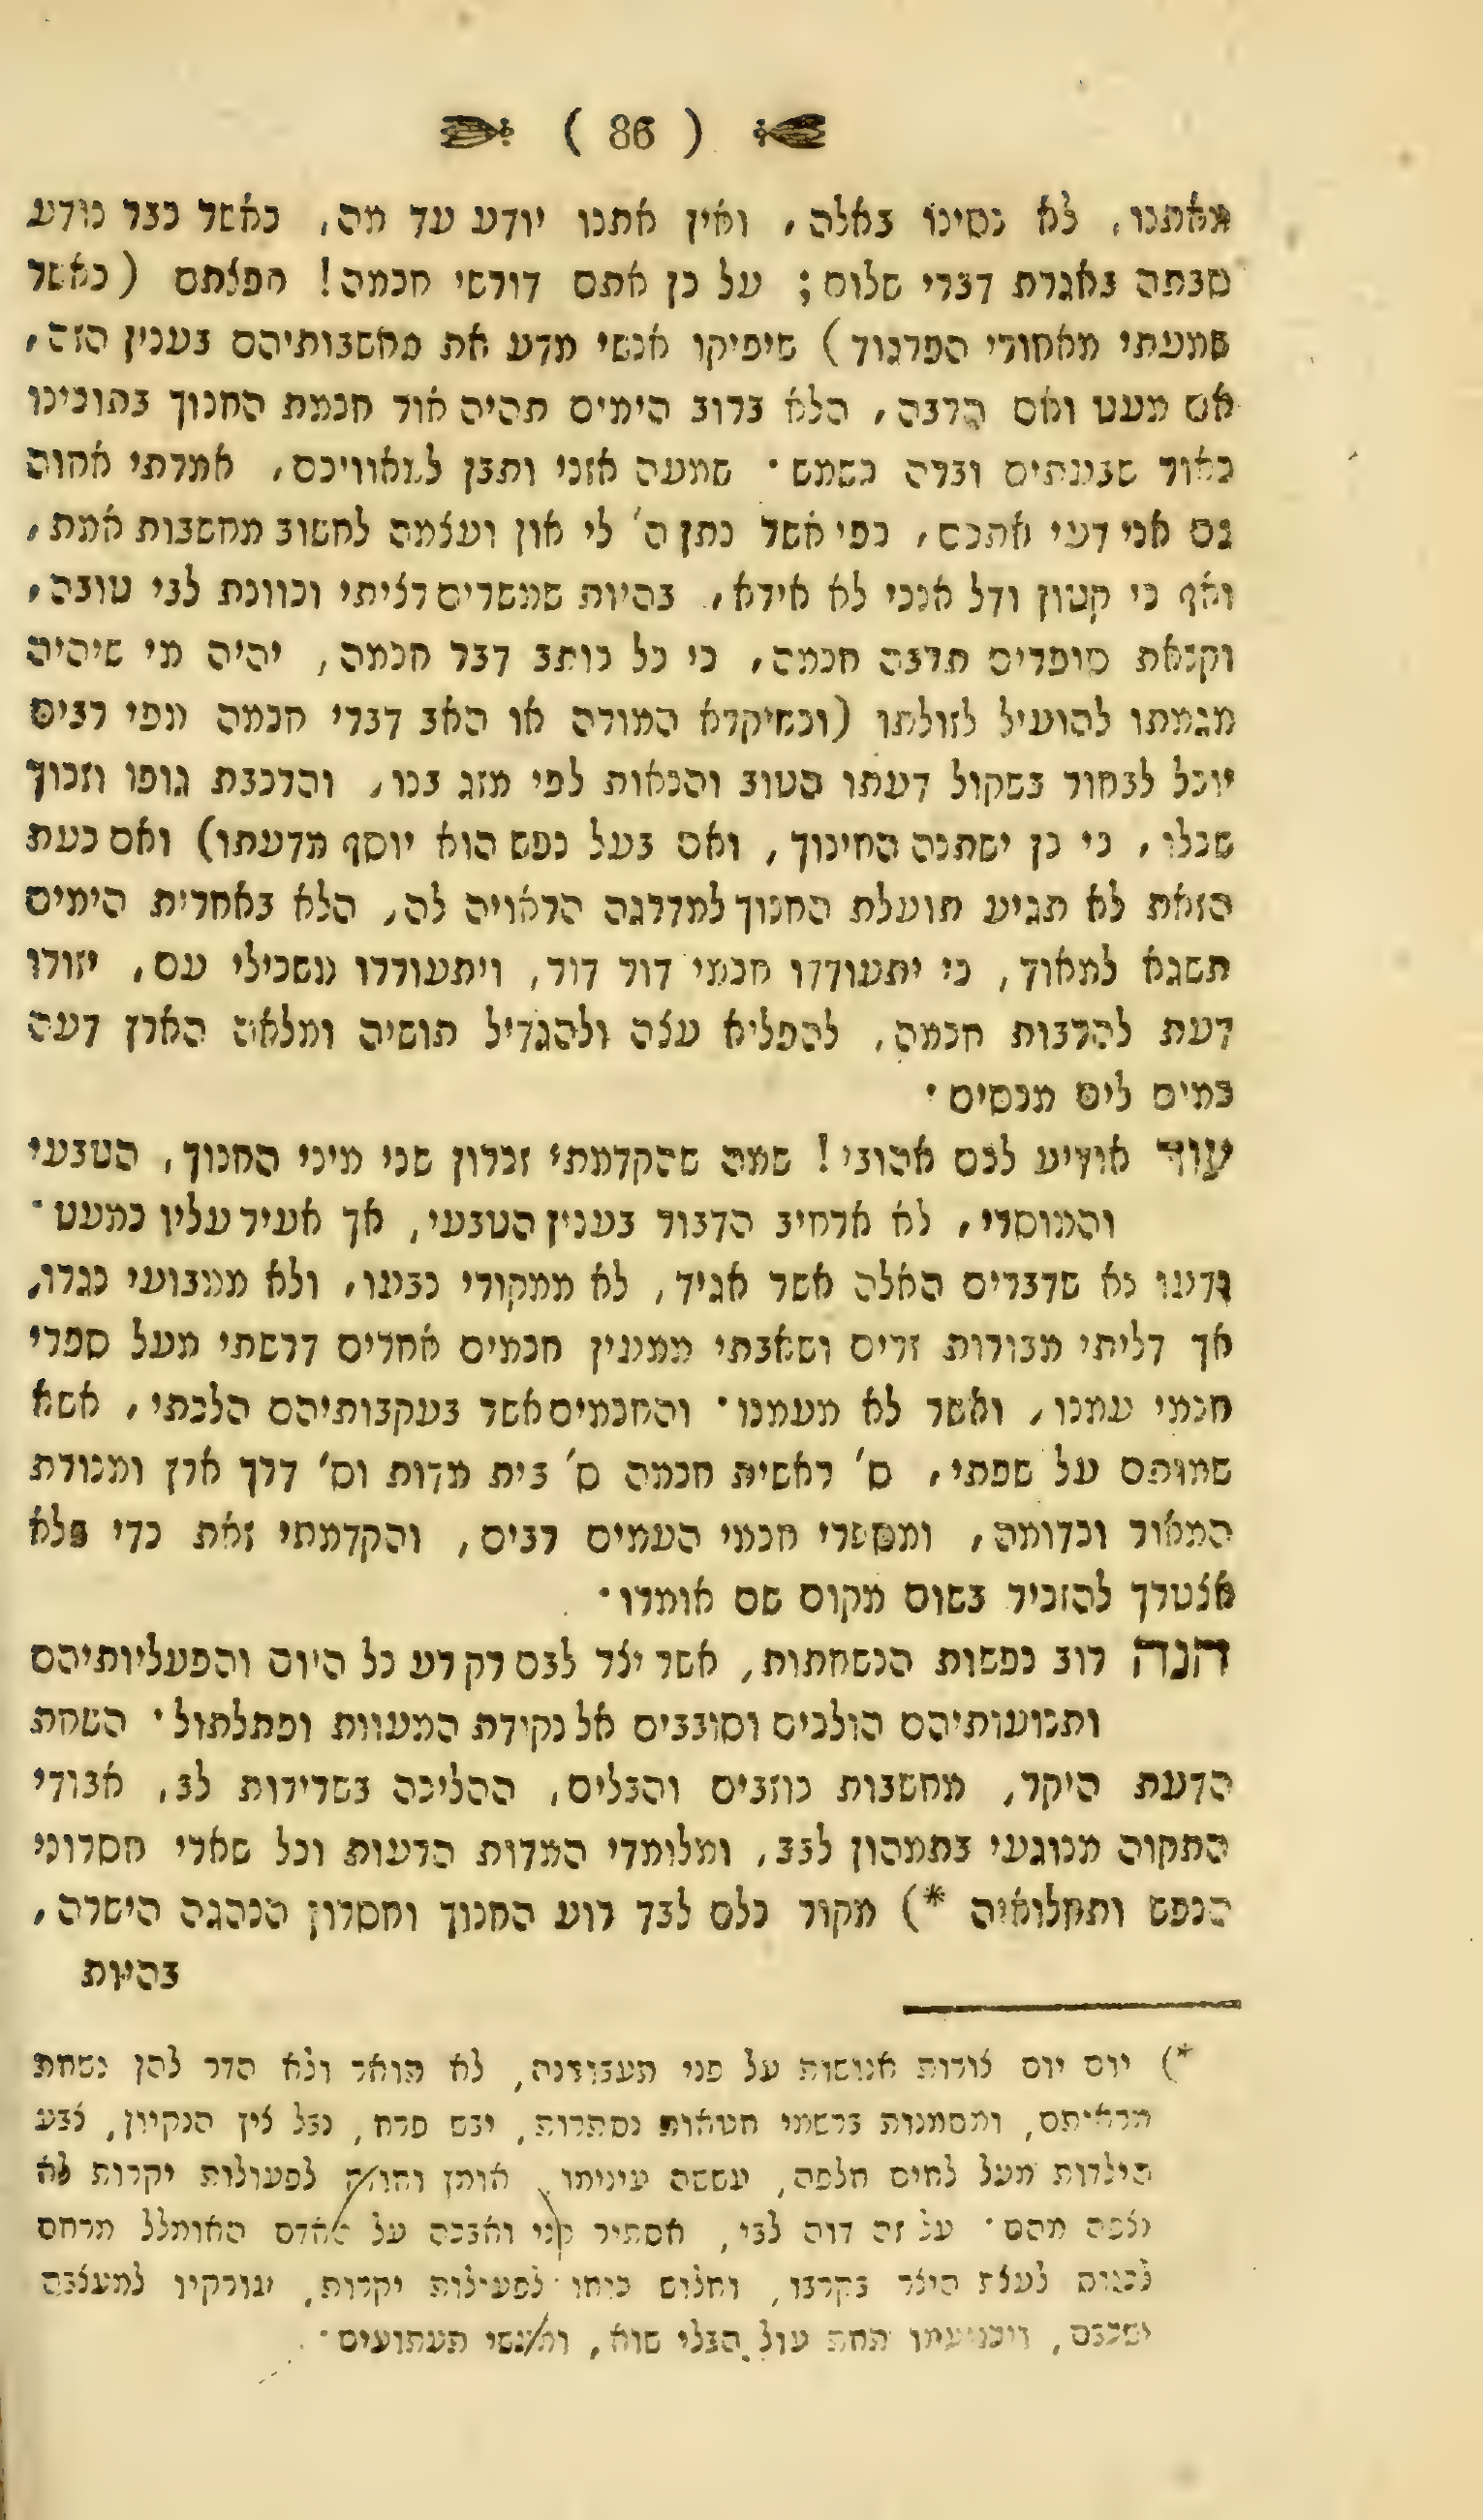 ( 86 )
מאתנו, לא נסינו באלה, ואין אתנו יודע עד מה, כאשר כבר נודע
סבתה באגרת דברי שלום; על כן אתם דורשי חכמה! חפצתם (כאשר
שמעתי מאחורי הפרגוד) שיפיקו אנשי מדע את מחשבותיהם בענין הזה,
אם מעט ואם הרבה, הלא ברוב הימים תהיה אור חכמת החנוך בתוכינו
כאור שבעתים וברה כשמש. שמעה אזני ותבן למאוויכם, אמרתי אחוה
גם אני דעי אתכם, כפי אשר נתן ה' לי און ועצמה לחשוב מחשבות אמת,
ואף כי קטון ודל אנכי לא אירא, בהיות שמשרים רציתי וכוונת לבי טובה,
וקנאת סופרים תרבה חכמה, כי כל כותב דבר חכמה, יהיה מי שיהיה
מגמתו להועיל לזולתו (וכשיקרא המורה או האב דברי חכמה מפי רבים
יוכל לבחור בשקול דעתו הטוב והנאות לפי מזג בנו, והרכבת גופו וזכוך
שכלו, כי כן ישתנה החינוך, ואם בעל נפש הוא יוסף מדעתו) ואם כעת
הזאת לא תגיע תועלת החנוך למדרגה הראויה לה, הלא באחרית הימים
תשגא למאוד, כי יתעודדו חכמי דור דור, ויתעוררו משכילי עם, יורו
דעת להרבות חכמה, להפליא עצה ולהגדיל תושיה ומלאה הארץ דעה
כמים לים מכסים.
עוד אודיע לכם אהובי! שמה שהקדמתי זכרון שני מיני החנוך, הטבעי
והמוסרי, לא ארחיב הדבור בענין הטבעי, אך אעיר עליו כמעט.
ודעו נא שדברים האלה אשר אגיד, לא ממקורי נבעו, ולא ממבועי נגרו,
אך דליתי מבורות זרים ושאבתי ממעין חכמים אחרים דרשתי מעל ספרי
חכמי עמנו, ואשר לא מעמנו. והחכמים אשר בעקבותיהם הלכתי, אשא
שמותם על שפתי, ס' ראשית חכמה ס' בית מדות וס' דרך ארץ ומנורת
המאור וכדומה, ומספרי חכמי העמים רבים, והקדמתי זאת כדי שלא
אצטרך להזכיר בשום מקום שם אומרו.
הנה רוב נפשות הנשחתות, אשר יצר לבם רק רע כל היום והפעליותיהם
ותנועותיהם הולכים וסובבים אל נקודת המעוות ופתלתול. השחת
הדעת היקר, מחשבות כוזבים והבלים, ההליכה בשרירות לב, אבודי
התקוה מנוגעי בתמהון לבב, ומלומדי המדות הרעות וכל שארי חסרוני
הנפש ותחלואיה *) מקור כלם לבד רוע החנוך וחסרון הנהגה הישרה,
בהיות
*) יום יום צורות אנושות על פני תעבורנה, לא תואר ולא הדר להן נשחת
מראיתם, ומסמנות ברשמי חטאות נסתרות, יבש פרח, נבל ציץ הנקיון, צבע
הילדות מעל לחים חלפה, עששה עינימו, אותן וחוזק לפעולות יקרות לא
נצפה מהם. על זה דוה לבי, אסתיר פני ואבכה על אדם האומלל מרחם
לכנוס לעצת היצר בקרבו, וחלוש כוחו לפעילות יקרות, עורקיו למעצבה
ישכבם, ויכניעמו תחת עול הבלי שוא, ומעשי תעתועים.